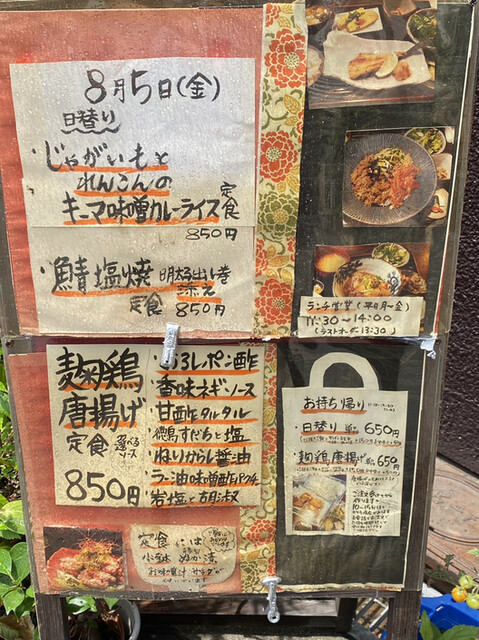 8月5日(金)
日替り
・じゃがいもと
れんこんの
キーマ味噌カレーライス定食
850円
・鯖塩焼 明太子出し巻
定食 添え
850円
ランチ営業(平日月〜金)
11:30〜14:00
(ラストオーダー13:30)
麹鶏
唐揚げ
定食 選べる
ソース
850円
おろしポン酢
・香味ネギソース
・甘酢タルタル
・徳島すだちと塩
・ねりからし醤油
・ラー油味噌
・岩塩と胡椒
お持ち帰り
・日替り 650円
・麹鶏唐揚げ 650円
ご注文後から
作ります
定食には
小鉢 ぬか漬
お味噌汁 サラダが